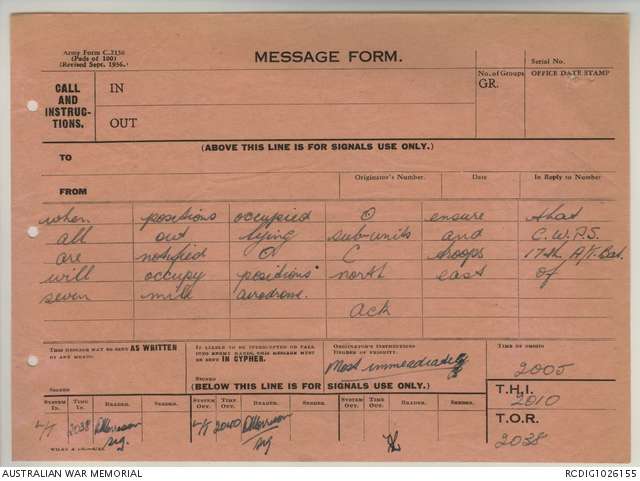 Army Form C.2136
(Pads of 100)
(Revised Sept. 1936.)
MESSAGE FORM.
Serial No.
CALL AND INSTRUC-TIONS.
IN
OUT
No. of Groups
GR.
OFFICE DATE STAMP
(ABOVE THIS LINE IS FOR SIGNALS USE ONLY.)
TO
FROM
Originator's Number.
Date
In Reply to Number
when positions occupied O ensure that
all out lying sub-units and C.W.P.S.
are notified O C troops 17th A/T. Bat.
will occupy positions north east of
seven mile aerodrome.
ack
THIS MESSAGE MAY BE SENT AS WRITTEN
BY ANY MEANS.
SIGNED
IF LIABLE TO BE INTERCEPTED OR FALL
INTO ENEMY HANDS, THIS MESSAGE MUST
BE SENT IN CYPHER.
SIGNED
ORIGINATOR'S INSTRUCTIONS
DEGREE OF PRIORITY.
Most immeadiately
TIME OF ORIGIN
2005
(BELOW THIS LINE IS FOR SIGNALS USE ONLY.)
T.H.I.
2010
T.O.R.
2038
SYSTEM IN. TIME IN. READER. SENDER. SYSTEM OUT. TIME OUT. READER. SENDER. SYSTEM OUT. TIME OUT. READER. SENDER.
L/T 2038 Sig. L/T 2040 Sig
AUSTRALIAN WAR MEMORIAL
RCDIG1026155